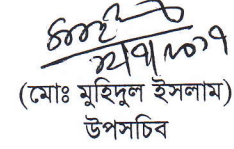 (মোঃ মুহিদুল ইসলাম)
উপসচিব